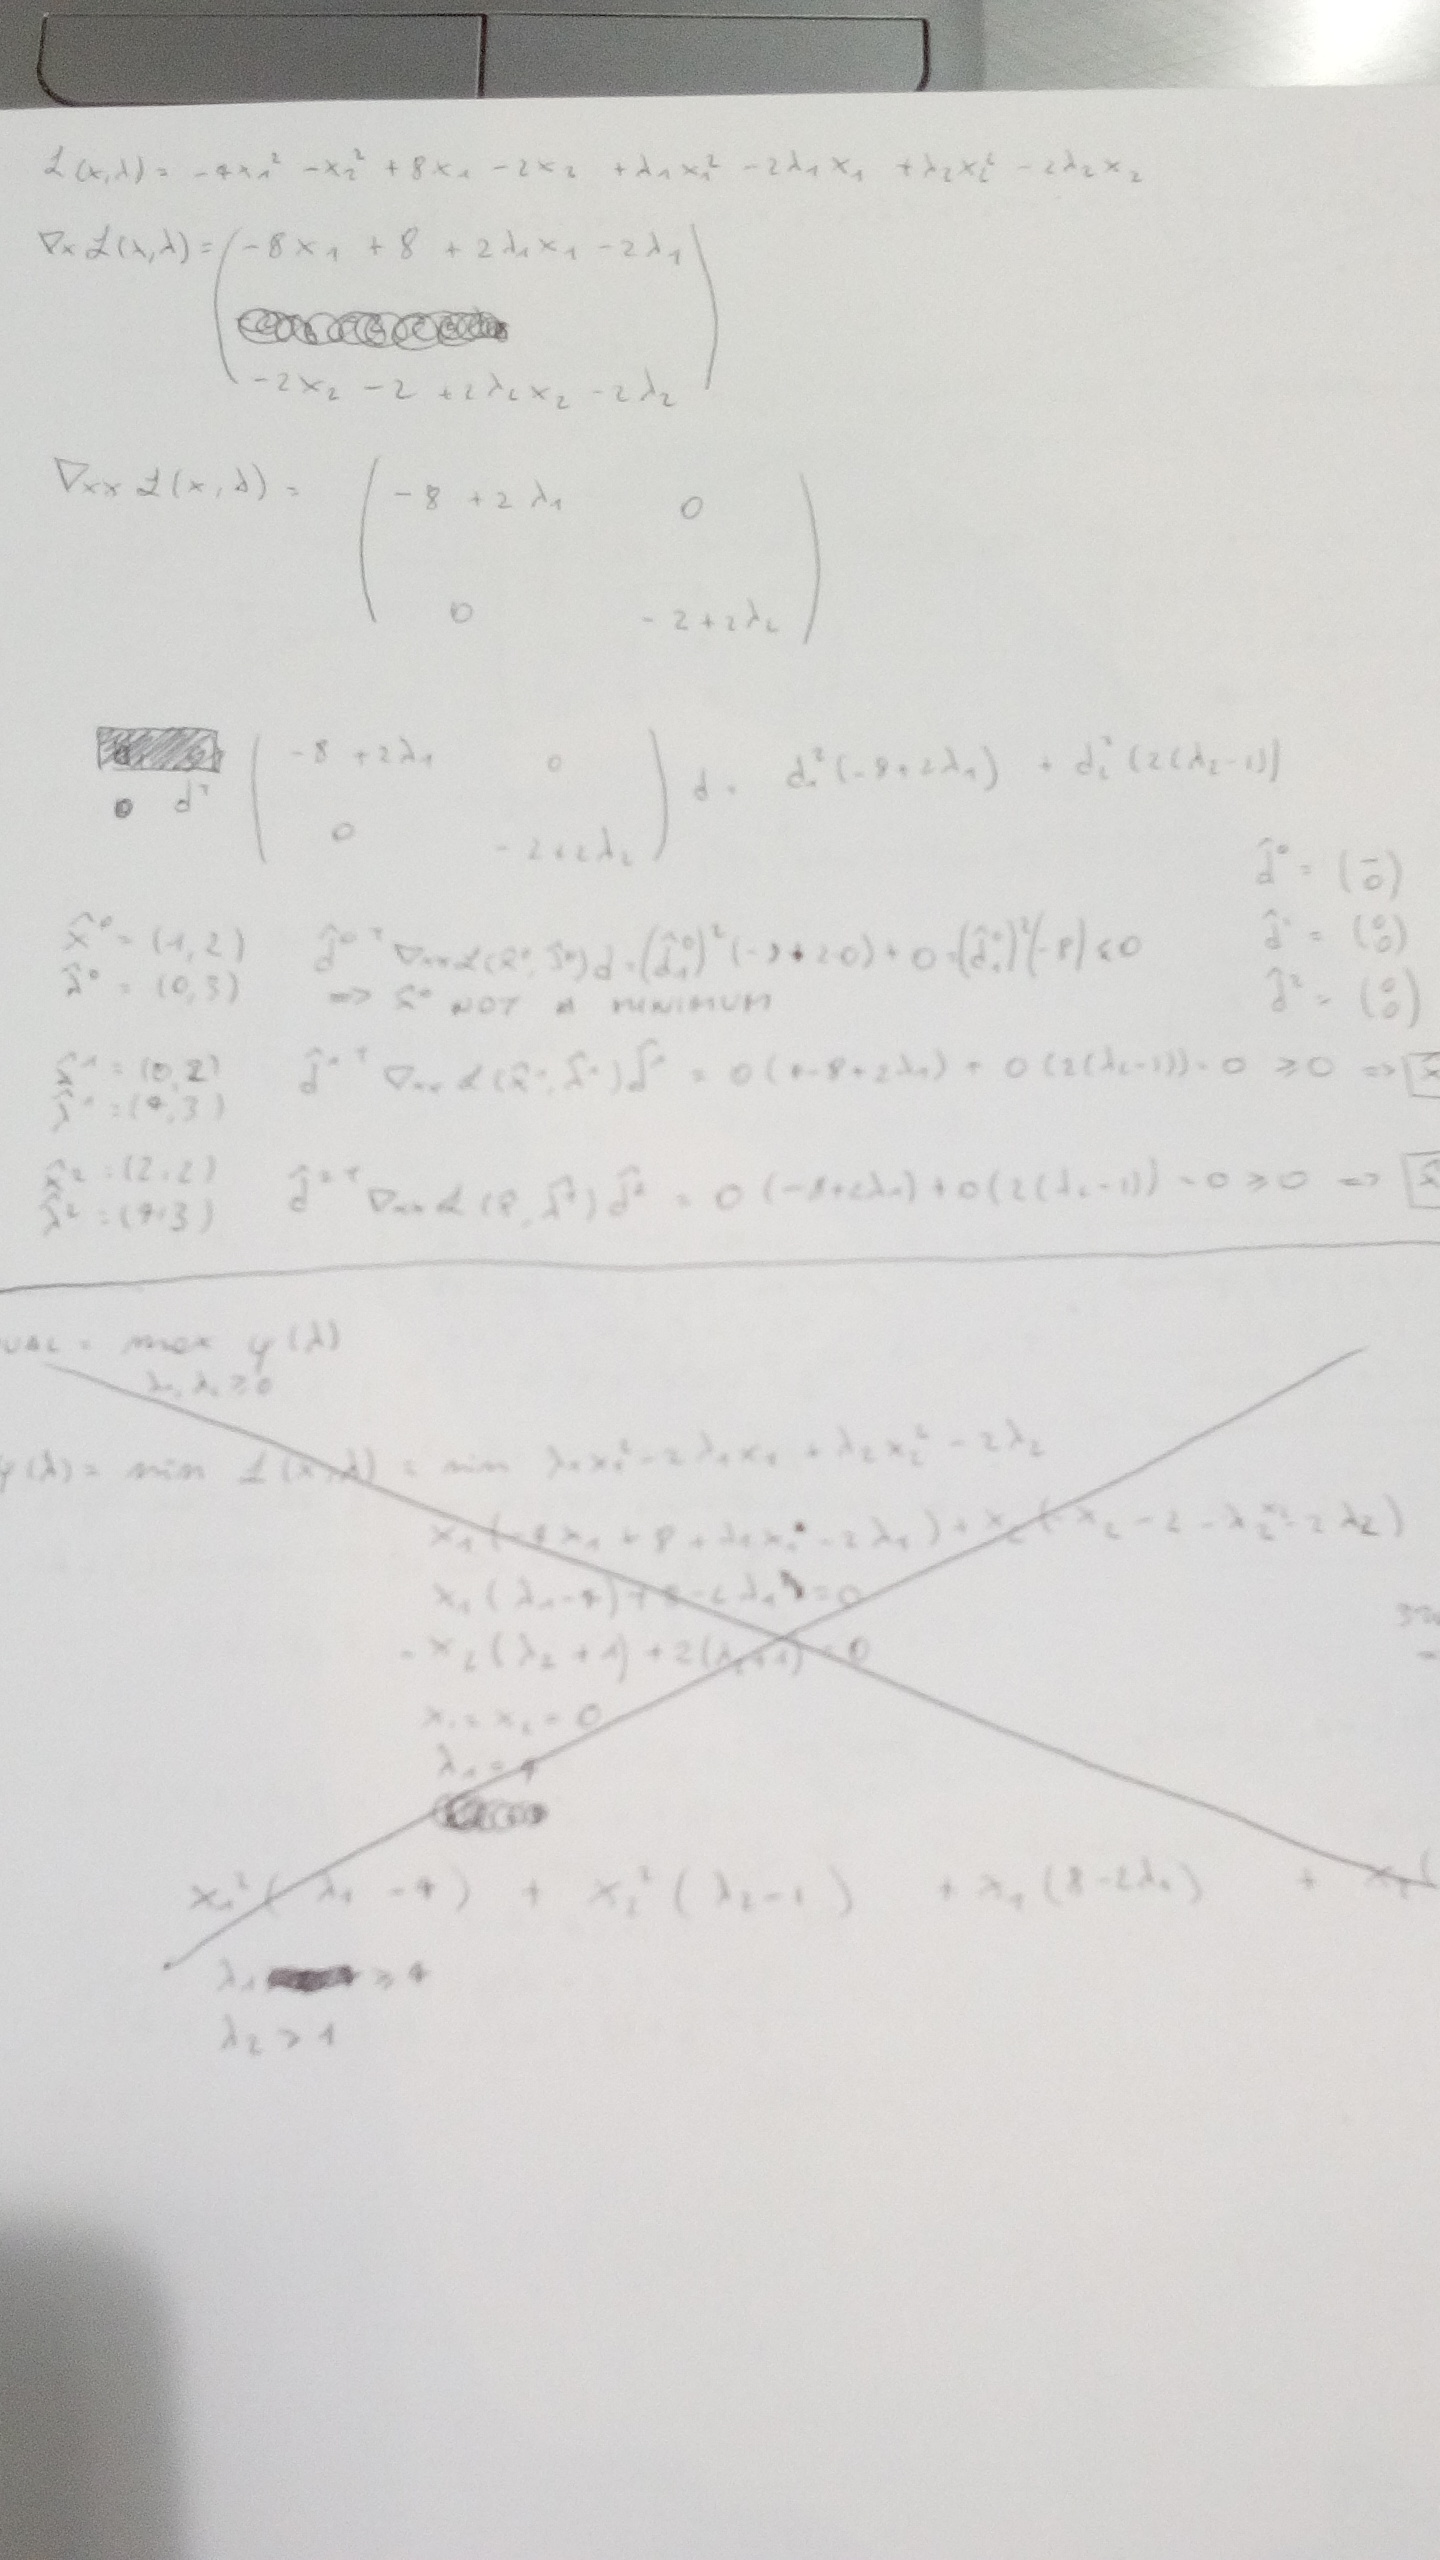 L(x,λ) = -4x₁² - x₂² + 8x₁ - 2x₂ + λ₁x₁² - 2λ₁x₁ + λ₂x₂² - 2λ₂x₂
∇x L(x,λ) = ( -8x₁ + 8 + 2λ₁x₁ - 2λ₁
-2x₂ - 2 + 2λ₂x₂ - 2λ₂ )
∇xx L(x,λ) = ( -8 + 2λ₁ 0
0 -2+2λ₂ )
dᵀ ( -8 + 2λ₁ 0
0 -2+2λ₂ ) d = d₁²(-8+2λ₁) + d₂²(2(λ₂-1))
d̂⁰ = (
0)
x̂⁰ = (1,2) d̂⁰ᵀ ∇xx L(x̂⁰, λ̂⁰) d = (d̂₁⁰)²(-8+2·0) + 0 = (d̂₁⁰)²(-8) < 0
d̂¹ = (0 0)
λ̂⁰ = (0,3) => x̂⁰ NOT A MINIMUM
d̂² = (0 0)
x̂¹ = (0,2) d̂¹ᵀ ∇xx L(x̂¹, λ̂¹) d̂¹ = 0(-8+2λ₁) + 0(2(λ₂-1)) = 0 ≥ 0 =>
λ̂¹ = (4,3)
x̂² = (2,2) d̂²ᵀ ∇xx L(x̂, λ̂²) d̂² = 0(-8+2λ₁) + 0(2(λ₂-1)) = 0 ≥ 0 =>
λ̂² = (4,3)
UAL = max φ(λ)
λ₁, λ₂ ≥ 0
φ(λ) = min L(x,λ) = min λ₁x₁² - 2λ₁x₁ + λ₂x₂² - 2λ₂
x₁(-4x₁ + 8 + λ₁x₁ - 2λ₁) + x₂(-x₂ - 2 - λ₂x₂ - 2λ₂)
x₁(λ₁-4) + 8-2λ₁ = 0
-x₂(λ₂+1) + 2(λ₂+1) = 0
x₁ = x₂ = 0
λ₁ = 4
x₁²(λ₁ - 4) + x₂²(λ₂-1) + x₁(8-2λ₁) + x₂(
λ₁ ≥ 4
λ₂ > 1